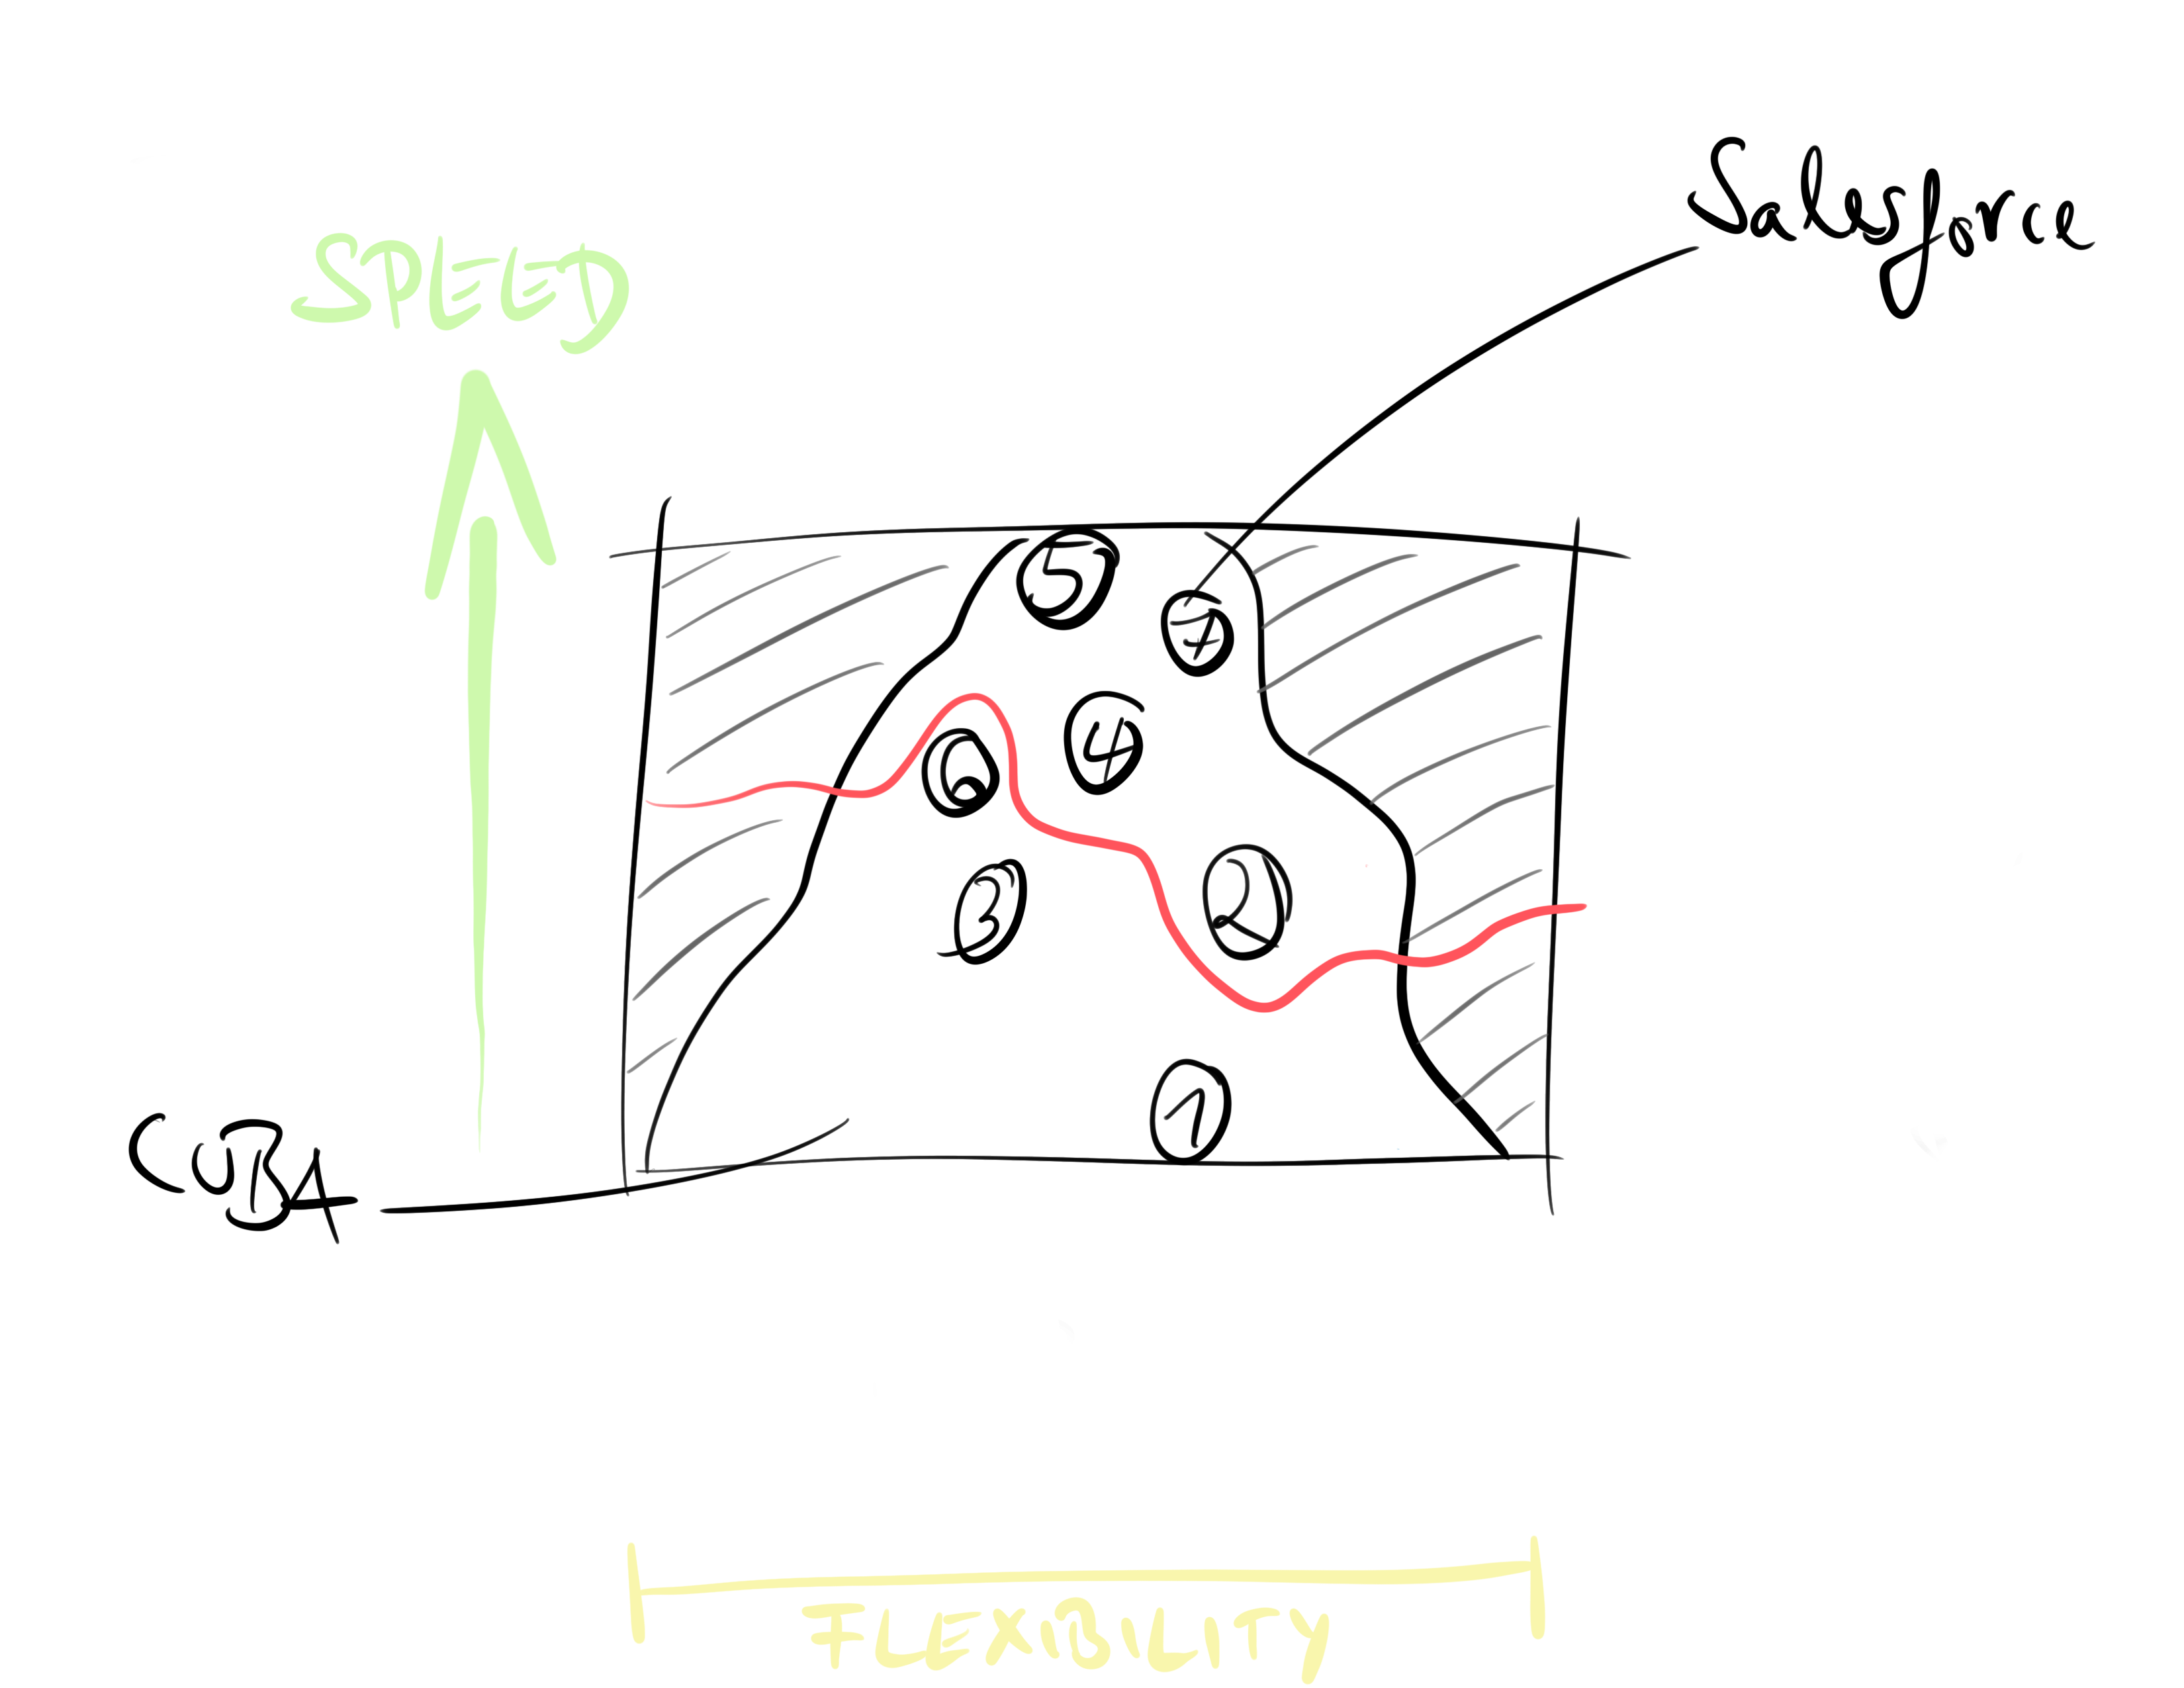 Salesforce
SPEED
5
7
4
6
3
2
1
CUBA
FLEXIBILITY